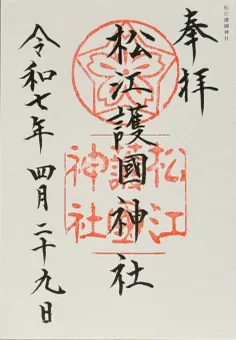 松江護國神社
奉拝
松江護國神社
松江
護國
神社
令和七年 四月二十九日